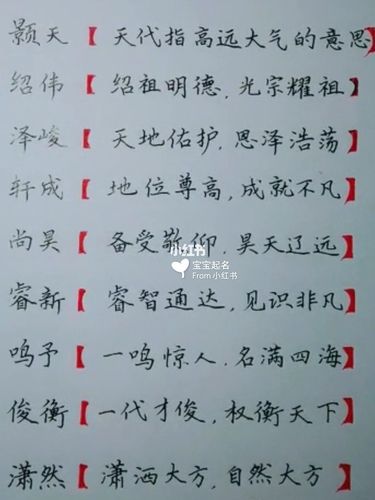 颢天【天代指高远大气的意思】
绍伟【绍祖明德,光宗耀祖】
泽峻【天地佑护,恩泽浩荡】
轩成【地位尊高,成就不凡】
尚昊【备受敬仰,昊天辽远】
小红书
宝宝起名
From 小红书
睿新【睿智通达,见识非凡】
鸣予【一鸣惊人,名满四海】
俊衡【一代才俊,权衡天下】
潇然【潇洒大方,自然大方】